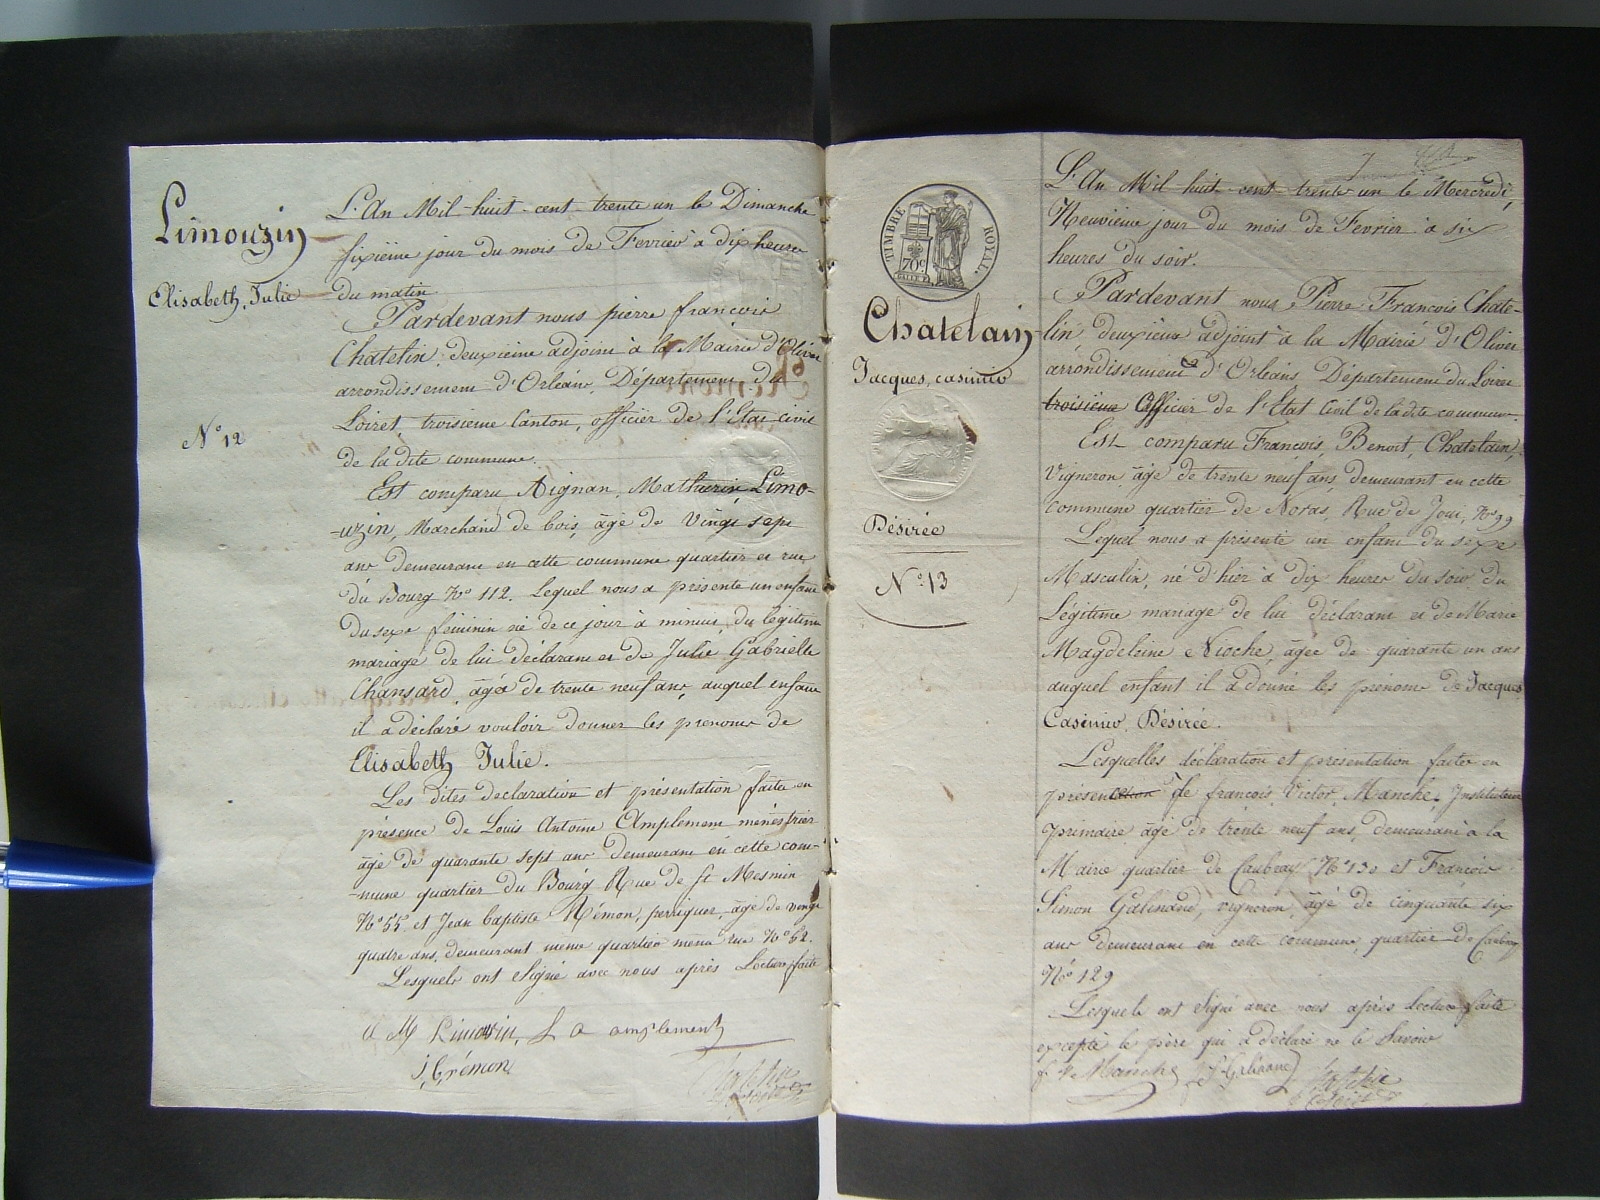 Limouzin
Elisabeth, Julie
N° 12
L'An Mil-huit-cent-trente un le Dimanche
sixième jour du mois de Fevrier à dix heures
du matin
Pardevant nous pierre francois
Chatelin, deuxième adjoint à la Mairie d'Olivet
arrondissement d'Orléans, Département du
Loiret troisieme Canton, officier de l'Etat civil
de la dite commune.
Est comparu Aignan, Mathurin, Limo-
-uzin, Marchand de bois, âgé de vingt sept
ans demeurant en cette commune quartier et rue
du Bourg N° 112. Lequel nous a présenté un enfant
du sexe féminin né de ce jour à minuit, du légitime
mariage de lui déclarant et de Julie Gabrielle
Chansard, agée de trente neuf ans, auquel enfant
il a déclaré vouloir donner les prenoms de
Elisabeth Julie.
Les dites declaration et présentation faites en
présence de Louis Antoine Amplement ménestrier
âgé de quarante sept ans demeurant en cette com-
-mune quartier du Bourg Rue de St Mesmin
N° 55 et Jean baptiste Rémon, perriquer, âgé de vingt
quatre ans, demeurant même quartier même rue N° 52.
Lesquels ont signé avec nous après Lecture faite
a M Limousin, L a amplement
J, b, rémon
TIMBRE ROYAL
70c
Chatelain
Jacques, casimir
Désirée
N° 13
7
L'An Mil-huit-cent-trente un le Mercredi,
Neuvieme jour du mois de Fevrier à six
heures du soir.
Pardevant nous Pierre Francois Chate-
lin, deuxieme adjoint à la Mairie d'Olivet
arrondissement d'Orléans Département du Loiret
troisieme Officier de l'Etat Civil de la dite commune
Est comparu François, Benoit, Chatelain,
Vigneron âgé de trente neuf ans, demeurant en cette
Commune quartier de Noras, Rue de Joui, N° 99
Lequel nous a présenté un enfant du sexe
Masculin, né d'hier à dix heures du soir du
Légitime mariage de lui déclarant et de Marie
Magdeleine Nioche, agée de quarante un ans
auquel enfant il a donné les prénoms de Jacques
Casimir Désirée.
Lesquelles déclaration et présentation faites en
présence de francois Victor, Manche, Instituteur
primaire âgé de trente neuf ans, demeurant à la
Mairie quartier de Caubray N° 130 et François
Simon Galinand, vigneron, âgé de cinquante six
ans demeurant en cette commune, quartier de Caubray
N° 129
Lesquels ont signé avec nous après lecture faite
excepté le père qui a déclaré ne le Savoir
f V Manche f S Galinand